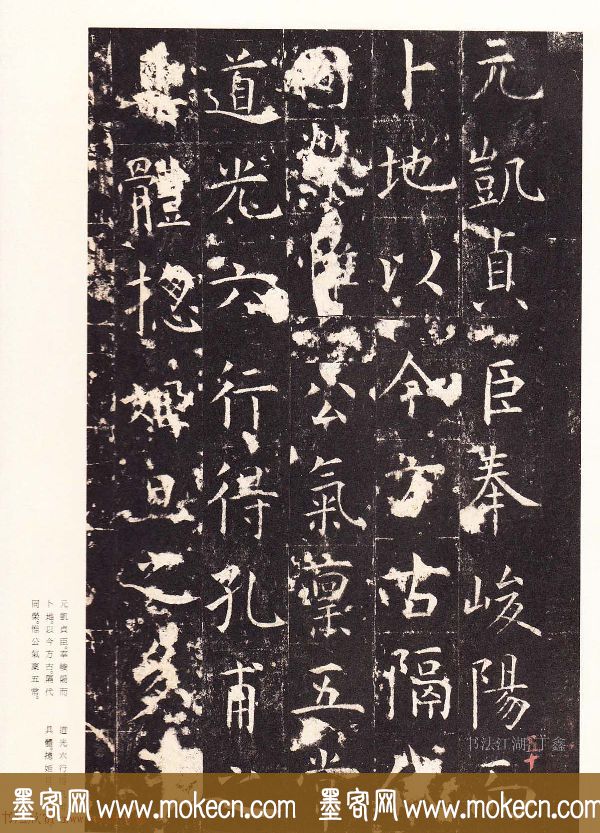 元凱貞臣奉峻陽而
卜地以今方古隔代
同榮惟公氣稟五常
道光六行得孔甫
具體揔姬旦之多
元凱貞臣。奉峻陽而
卜地。以今方古。隔代
同榮。惟公氣稟五常。
道光六行
具體。揔姬
书法江湖 丁鑫
墨客网 www.mokecn.com 墨客网 www.mokecn.com